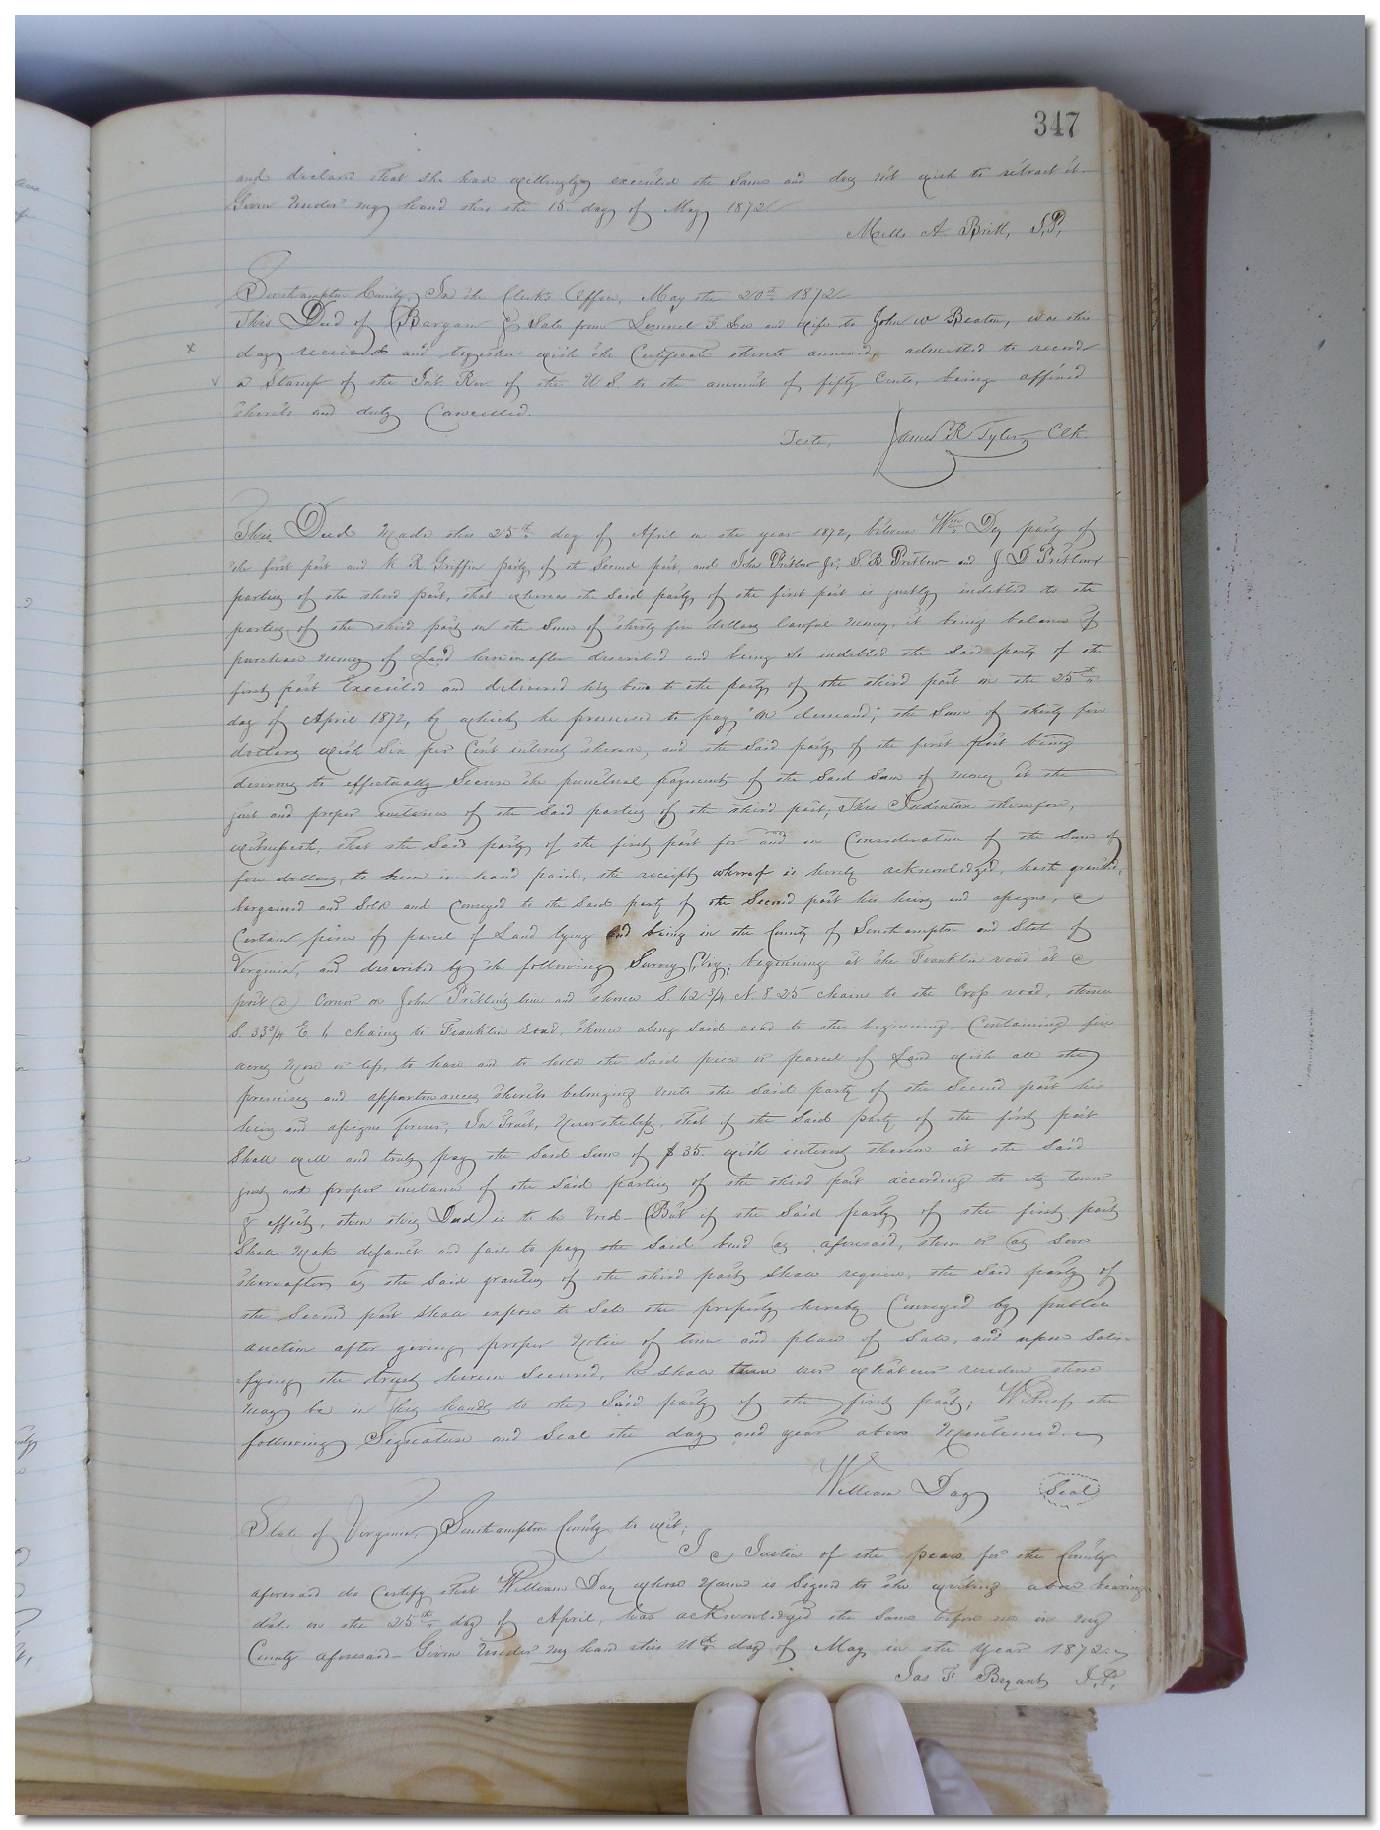 347
and declared that she had willingly executed the same and does not wish to retract it.
Given under my hand this the 15 day of May 1872
Mills A. Britt, J.P.
Southampton County, In the Clerk's Office, May the 20th 1872
This Deed of Bargain & Sale from Lemuel F. Lee and wife to John W Beaton, was this
x day received and together with the Certificate thereto annexed, admitted to record
v a Stamp of the Int. Rev of the U.S. to the amount of fifty Cents, being affixed
thereto and duly Cancelled.
Teste, James R Tyler Clk.
This Deed Made this 25th day of April in the year 1872, between Wm Day party of
the first part and R Griffin party of the Second part, and John Pretlow Jr, S. B Pretlow and J D Pretlow
parties of the third part, that whereas the said party of the first part is justly indebted to the
parties of the third part in the Sum of thirty five dollars lawful money, it being balance of
purchase money of Land hereinafter described and being so indebted the said party of the
first part Executed and delivered his bond to the party of the third part on the 25th
day of April 1872, by which he promised to pay "on demand", the Sum of thirty five
dollars with Six per Cent interest thereon, and the said party of the first part being
desirous to effectually Secure the punctual payment of the said Sum of money at the
just and proper instance of the said parties of the third part, This Indenture therefore,
witnesseth, that the said party of the first part for and in Consideration of the Sum of
five dollars, to him in hand paid, the receipt whereof is hereby acknowledged, hath granted,
bargained and Sold and Conveyed to the said party of the Second part his heirs and assigns, a
Certain piece of parcel of Land lying and being in the County of Southampton and State of
Virginia, and described by the following Survey, Viz; beginning at the Franklin road at a
post a Corner on John Pretlow's line and thence S. 62 3/4 W. 8 25 chains to the Cross road, thence
S. 33 3/4 E 6 chains to Franklin road, thence along said road to the beginning Containing five
acres More or less, to have and to hold the said piece or parcel of Land with all the
premises and appurtenances thereto belonging unto the said party of the Second part his
heirs and assigns forever, In Trust, Nevertheless, that if the said party of the first part
Shall well and truly pay the said Sum of $35. with interest thereon at the said
just and proper instance of the said parties of the third part according to its tenor
& effect, then this Deed is to be Void- But if the said party of the first part
Shall make default and fail to pay the said bond as aforesaid, then or as Soon
thereafter as the said granties of the third part Shall require, the said party of
the Second part Shall expose to Sale the property hereby Conveyed by public
auction after giving proper Notice of time and place of Sale, and upon Satis-
fying the trust herein Secured, he shall then over whatever residue there
may be in his hands to the said party of the first part; Witness the
following Signature and Seal the day and year above Mentioned.
William Day Seal
State of Virginia, Southampton County, to wit;
I a Justice of the peace for the County
aforesaid do Certify that William Day whose Name is Signed to the writing above bearing
date on the 25th day of April, has acknowledged the same before me in my
County aforesaid- Given Under my hand this 11th day of May in the year 1872.
Jas F Bryant J.P.